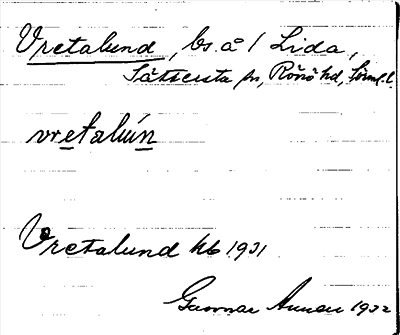 Vretalund, bs. å 1 Lida,
Sättersta sn, Rönö hd, Söml. l.
vretalún
Vretalund hb 1931
Gunnar 1932